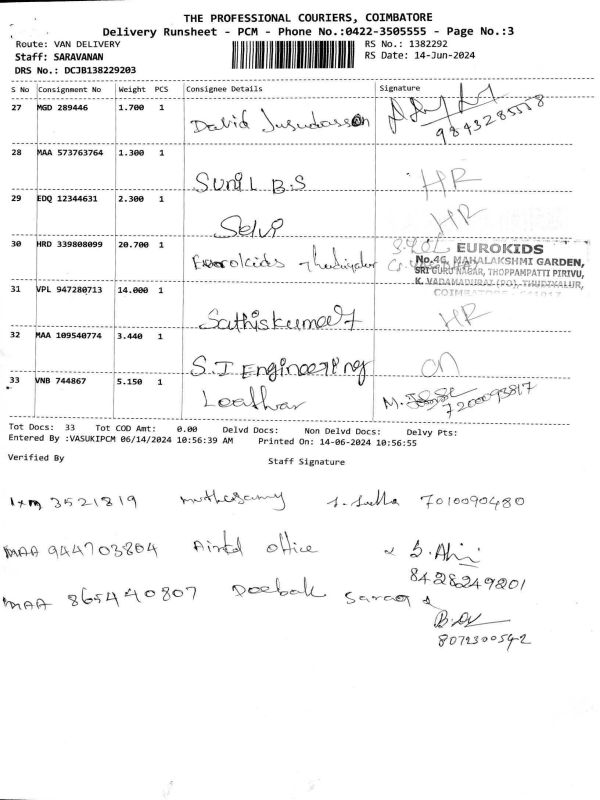 THE PROFESSIONAL COURIERS, COIMBATORE
Delivery Runsheet - PCM - Phone No.:0422-3505555 - Page No.:3
Route: VAN DELIVERY RS No.: 1382292
Staff: SARAVANAN RS Date: 14-Jun-2024
DRS No.: DCJB138229203
S No Consignment No Weight PCS Consignee Details Signature
27 MGD 289446 1.700 1 David Jusudasson 9843285558
28 MAA 573763764 1.300 1 Sunil B.S HR
29 EDQ 12344631 2.300 1 Selvi HR
30 HRD 339808099 20.700 1 Eurokids Thudiyalur
EUROKIDS
No.46, MAHALAKSHMI GARDEN,
SRI GURU NAGAR, THOPPAMPATTI PIRIVU,
K. VADAMADURAI (PO), THUDIYALUR,
COIMBATORE
31 VPL 947280713 14.000 1 Sathiskumar HR
32 MAA 109540774 3.440 1 S.I Engineering on
33 VNB 744867 5.150 1 M. 7200093817
Tot Docs: 33 Tot COD Amt: 0.00 Delvd Docs: Non Delvd Docs: Delvy Pts:
Entered By :VASUKIPCM 06/14/2024 10:56:39 AM Printed On: 14-06-2024 10:56:55
Verified By Staff Signature
3521819 muthusamy 7010090480
MAA 944703804 office
8428249201
MAA 865440807 Deebak
8072300592